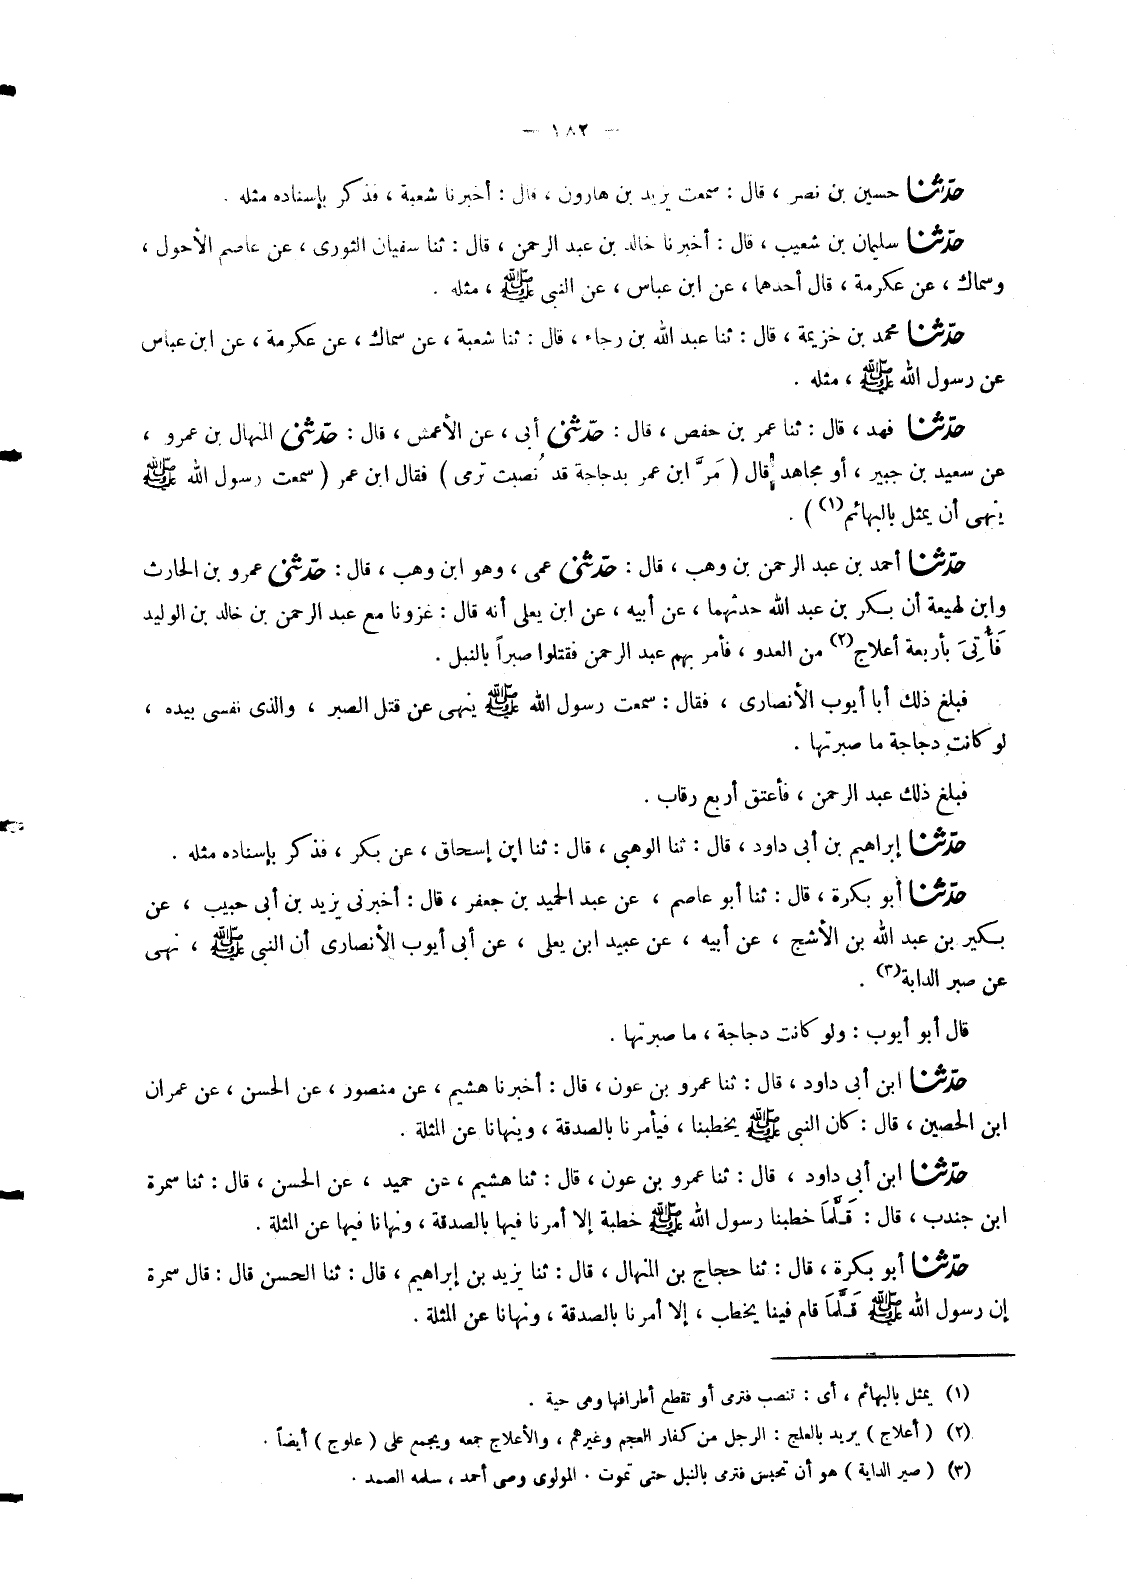 — ١٨٢ —
حدّثنا حسين بن نصر ، قال : سمعت يزيد بن هارون ، قال : أخبرنا شعبة ، فذكر بإسناده مثله .
حدّثنا سليمان بن شعيب ، قال : أخبرنا خالد بن عبد الرحمن ، قال : ثنا سفيان الثورى ، عن عاصم الأحول ،
وسماك ، عن عكرمة ، قال أحدهما ، عن ابن عباس ، عن النبى ﷺ ، مثله .
حدّثنا محمد بن خزيمة ، قال : ثنا عبد الله بن رجاء ، قال : ثنا شعبة ، عن سماك ، عن عكرمة ، عن ابن عباس
عن رسول الله ﷺ ، مثله .
حدّثنا فهد ، قال : ثنا عمر بن حفص ، قال : حدّثنى أبى ، عن الأعمش ، قال : حدّثنى المنهال بن عمرو ،
عن سعيد بن جبير ، أو مجاهد قال ( مَرَّ ابن عمر بدجاجة قد نُصبت ترمى ) فقال ابن عمر ( سمعت رسول الله ﷺ
ينهى أن يمثل بالبهائم(١) ) .
حدّثنا أحمد بن عبد الرحمن بن وهب ، قال : حدّثنى عمى ، وهو ابن وهب ، قال : حدّثنى عمرو بن الحارث
وابن لهيعة أن بكر بن عبد الله حدثهما ، عن أبيه ، عن ابن يعلى أنه قال : غزونا مع عبد الرحمن بن خالد بن الوليد
فَأُتِىَ بأربعة أعلاج(٢) من العدو ، فأمر بهم عبد الرحمن فقتلوا صبراً بالنبل .
فبلغ ذلك أبا أيوب الأنصارى ، فقال : سمعت رسول الله ﷺ ينهى عن قتل الصبر ، والذى نفسى بيده ،
لو كانت دجاجة ما صبرتها .
فبلغ ذلك عبد الرحمن ، فأعتق أربع رقاب .
حدّثنا إبراهيم بن أبى داود ، قال : ثنا الوهبى ، قال : ثنا ابن إسحاق ، عن بكر ، فذكر بإسناده مثله .
حدّثنا أبو بكرة ، قال : ثنا أبو عاصم ، عن عبد الحميد بن جعفر ، قال : أخبرنى يزيد بن أبى حبيب ، عن
بكير بن عبد الله بن الأشج ، عن أبيه ، عن عبيد ابن يعلى ، عن أبى أيوب الأنصارى أن النبى ﷺ ، نهى
عن صبر الدابة(٣) .
قال أبو أيوب : ولو كانت دجاجة ، ما صبرتها .
حدّثنا ابن أبى داود ، قال : ثنا عمرو بن عون ، قال : أخبرنا هشيم ، عن منصور ، عن الحسن ، عن عمران
ابن الحصين ، قال : كان النبى ﷺ يخطبنا ، فيأمرنا بالصدقة ، وينهانا عن المثلة .
حدّثنا ابن أبى داود ، قال : ثنا عمرو بن عون ، قال : ثنا هشيم ، عن حميد ، عن الحسن ، قال : ثنا سمرة
ابن جندب ، قال : قَلَّمَا خطبنا رسول الله ﷺ خطبة إلا أمرنا فيها بالصدقة ، ونهانا فيها عن المثلة .
حدّثنا أبو بكرة ، قال : ثنا حجاج بن المنهال ، قال : ثنا يزيد بن إبراهيم ، قال : ثنا الحسن قال : قال سمرة
إن رسول الله ﷺ قَلَّمَا قام فينا يخطب ، إلا أمرنا بالصدقة ، ونهانا عن المثلة .
(١) يمثل بالبهائم ، أى : تنصب فترمى أو تقطع أطرافها وهى حية .
(٢) ( أعلاج ) يريد بالعلج : الرجل من كفار العجم وغيرهم ، والأعلاج جمعه ويجمع على ( علوج ) أيضاً .
(٣) ( صبر الدابة ) هو أن تحبس فترمى بالنبل حتى تموت . المولوى وصى أحمد ، سلمه الصمد .